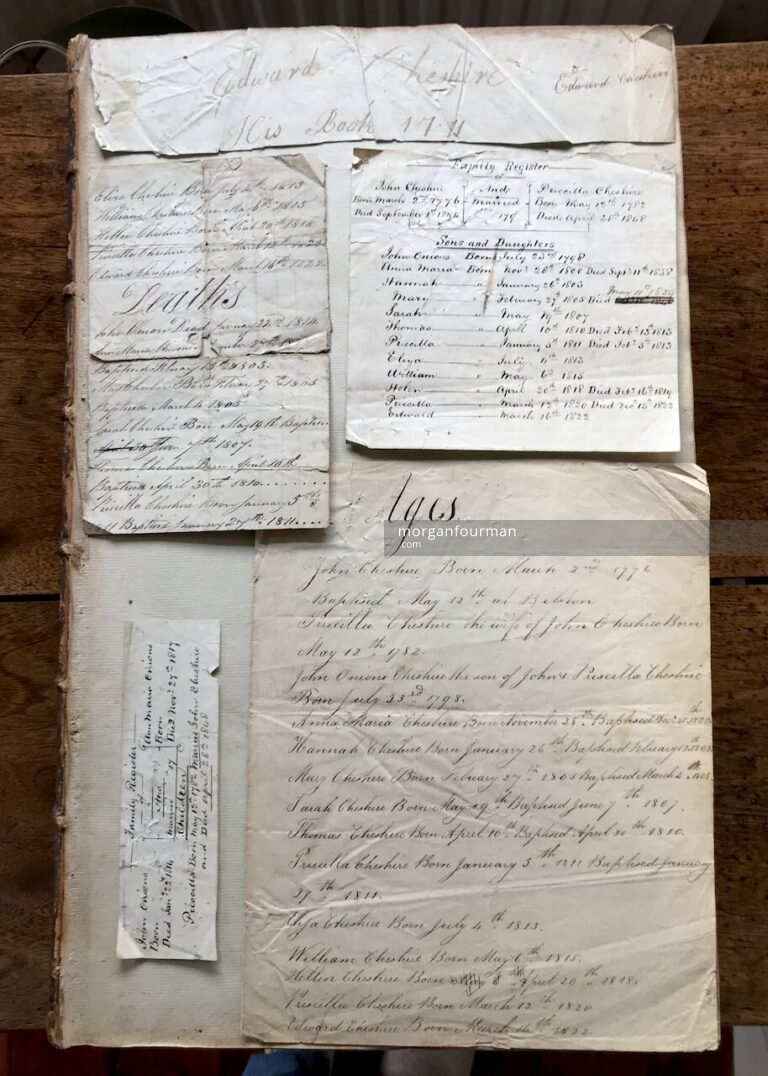 Edward Cheshire
Edward Cheshire
His Book 17
Eliza Cheshire Born July 4th 1813
William Cheshire Born May 6th 1815
Hellen Cheshire Born April 20th 1818
Priscilla Cheshire Born March 12th 1820
Edward Cheshire Born March 16th 1822
Deaths
John Onions Died January 22nd 1814
Baptised 1803.
Born 27th 1805
Baptised March 4 1805
Sarah Cheshire Born May 19th Baptised
7th 1807.
Thomas Cheshire Born April 10th
Baptised April 30th 1810
Priscilla Cheshire Born January 5th
1811 Baptised January 27th 1811
Family Register
of
John Cheshire And Priscilla Cheshire
Born March 2nd 1776 Married Born May 12th 1782
Died September 1st 179 Died April 28th 1848
Sons and Daughters
John Onions Born July 23rd 1798
Anna Maria Born Novr 28th 1800 Died Septr 11th 1838
Hannah " January 26th 1803
Mary " February 27th 1805 Died May 10th 1850
Sarah " May 19th 1807
Thomas " April 10th 1810 Died Feb 15th 1813
Priscilla " January 5th 1811 Died Feb 5th 1813
Eliza " July 4th 1813
William " May 6th 1815
Helen " April 20th 1818 Died Feb 16th 1819
Priscilla " March 12th 1820 Died Dec 15th 1822
Edward " March 16th 1822
Ages
morganfourman
com
John Cheshire Born March 2nd 1776
Baptised May 12th at Bilston
Priscilla Cheshire the wife of John Cheshire Born
May 12th 1782.
John Onions Cheshire the son of John & Priscilla Cheshire
Born July 23rd 1798.
Anna Maria Cheshire Born November 28th Baptised Dec
Hannah Cheshire Born January 26th Baptised February
Mary Cheshire Born February 27th 1805 Baptised March 4th 1805
Sarah Cheshire Born May 19th Baptised June 7th 1807.
Thomas Cheshire Born April 10th Baptised April 30th 1810.
Priscilla Cheshire Born January 5th 1811 Baptised January
27th 1811.
Cheshire Born July 4th 1813.
William Cheshire Born May 6th 1815.
Hellen Cheshire Born April 20th 1818.
Priscilla Cheshire Born March 12th 1820
Edward Cheshire Born March 16th 1822.
Family Register
of
John Onions And Ann Maria Onions
Born Born
Died Jany 22nd 1814 Married 17 Died Novr 27th 1817
Children
Priscilla Born May 12th 1782 Married John Cheshire
and Died April 28th 1848